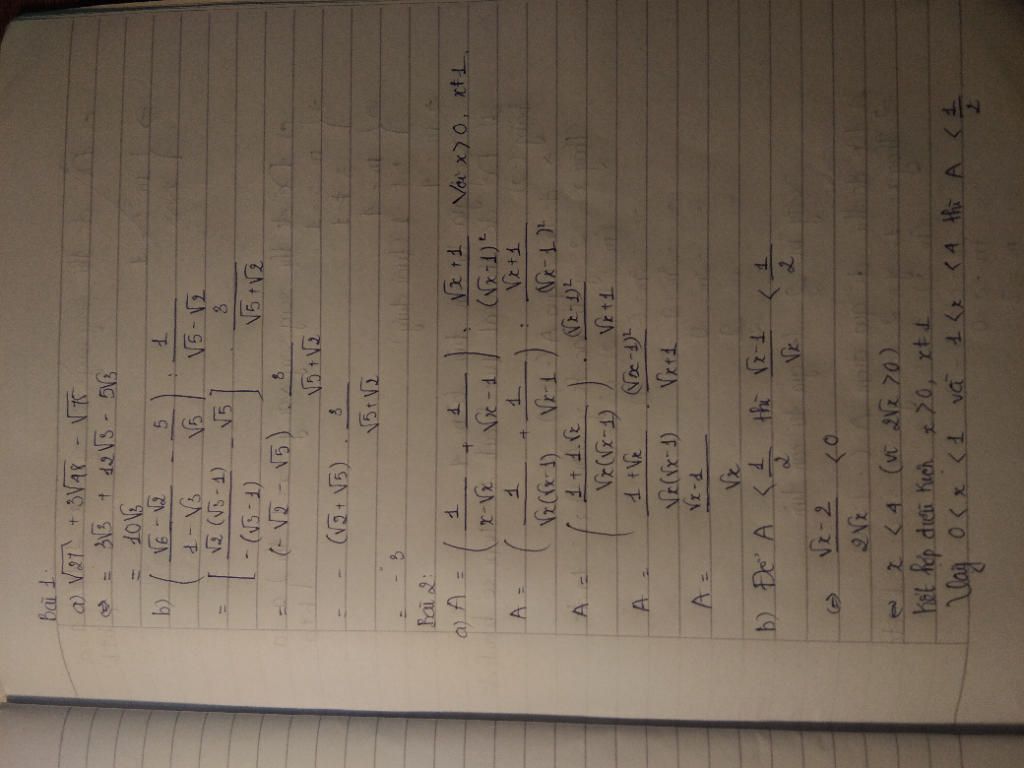 Bài 1:
a) √27 + 3√48 - √75
⇔ = 3√3 + 12√3 - 5√3
= 10√3
b) ( (√6 - √2)/(1 - √3) - 5/√5 ) : 1/(√5 - √2)
= [ √2(√3 - 1)/(-(√3 - 1)) - √5 ] . 3/(√5 + √2)
= (-√2 - √5) . 3/(√5 + √2)
= - (√2 + √5) . 3/(√5 + √2)
= - 3
Bài 2:
a) A = ( 1/(x - √x) + 1/(√x - 1) ) : (√x + 1)/(√x - 1)² Với x > 0, x ≠ 1
A = ( 1/(√x(√x - 1)) + 1/(√x - 1) ) : (√x + 1)/(√x - 1)²
A = ( (1 + 1.√x)/(√x(√x - 1)) ) . (√x - 1)²/(√x + 1)
A = (1 + √x)/(√x(√x - 1)) . (√x - 1)²/(√x + 1)
A = (√x - 1)/√x
b) Để A < 1/2 thì (√x - 1)/√x < 1/2
⇔ (√x - 2)/(2√x) < 0
⇔ x < 4 (vì 2√x > 0)
Kết hợp điều kiện x > 0, x ≠ 1
Vậy 0 < x < 1 và 1 < x < 4 thì A < 1/2